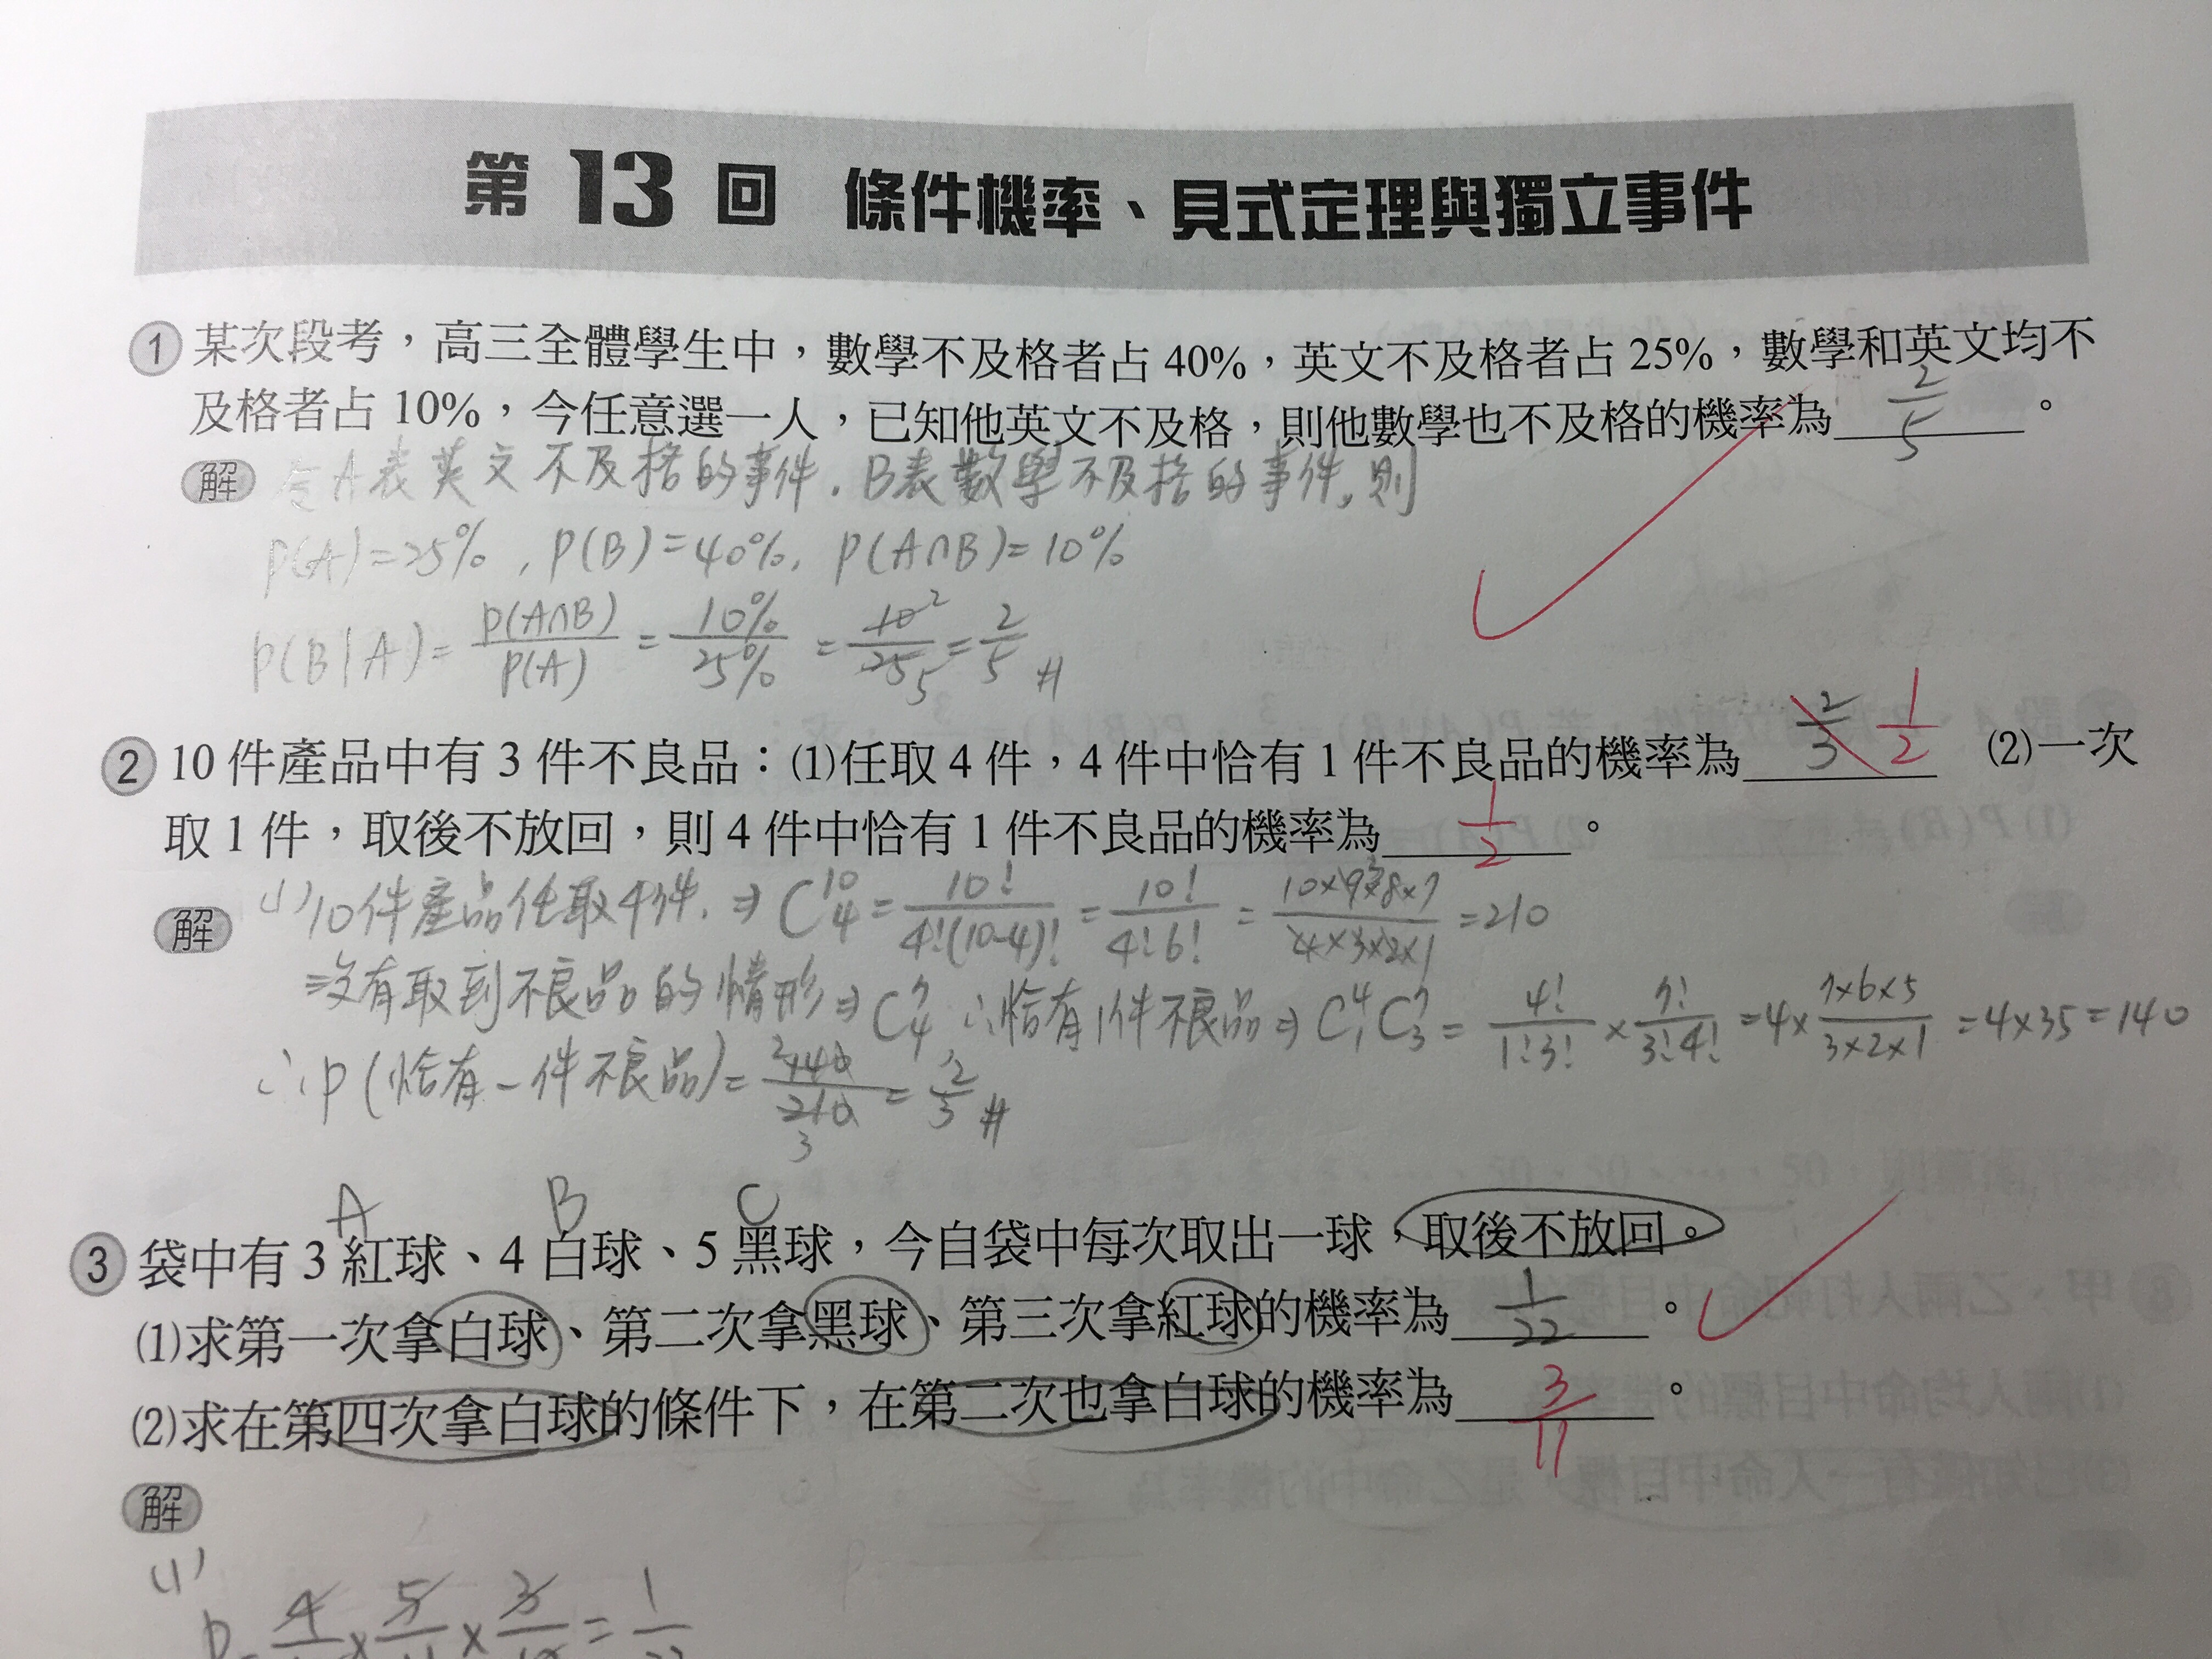 第 13 回 條件機率、貝式定理與獨立事件
1 某次段考，高三全體學生中，數學不及格者占 40%，英文不及格者占 25%，數學和英文均不
及格者占 10%，今任意選一人，已知他英文不及格，則他數學也不及格的機率為 2/5 。
解 令A表英文不及格的事件，B表數學不及格的事件，則
P(A)=25%，P(B)=40%，P(A∩B)=10%
P(B|A)= P(A∩B)/P(A) = 10%/25% = 10/25 = 2/5 #
2 10 件產品中有 3 件不良品：(1)任取 4 件，4 件中恰有 1 件不良品的機率為 2/3 1/2 (2)一次
取 1 件，取後不放回，則 4 件中恰有 1 件不良品的機率為 1/2 。
解 (1) 10件產品任取4件. ⇒ C^10_4 = 10!/4!(10-4)! = 10!/4!6! = 10×9×8×7/4×3×2×1 = 210
⇒沒有取到不良品的情形⇒ C^7_4 ∴恰有1件不良品⇒ C^4_1 C^7_3 = 4!/1!3! × 7!/3!4! = 4× 7×6×5/3×2×1 = 4×35=140
∴P(恰有一件不良品)= 140/210 = 2/3 #
A B C
3 袋中有 3 紅球、4 白球、5 黑球，今自袋中每次取出一球，取後不放回。
(1)求第一次拿白球、第二次拿黑球、第三次拿紅球的機率為 1/22 。
(2)求在第四次拿白球的條件下，在第二次也拿白球的機率為 3/11 。
解
(1)